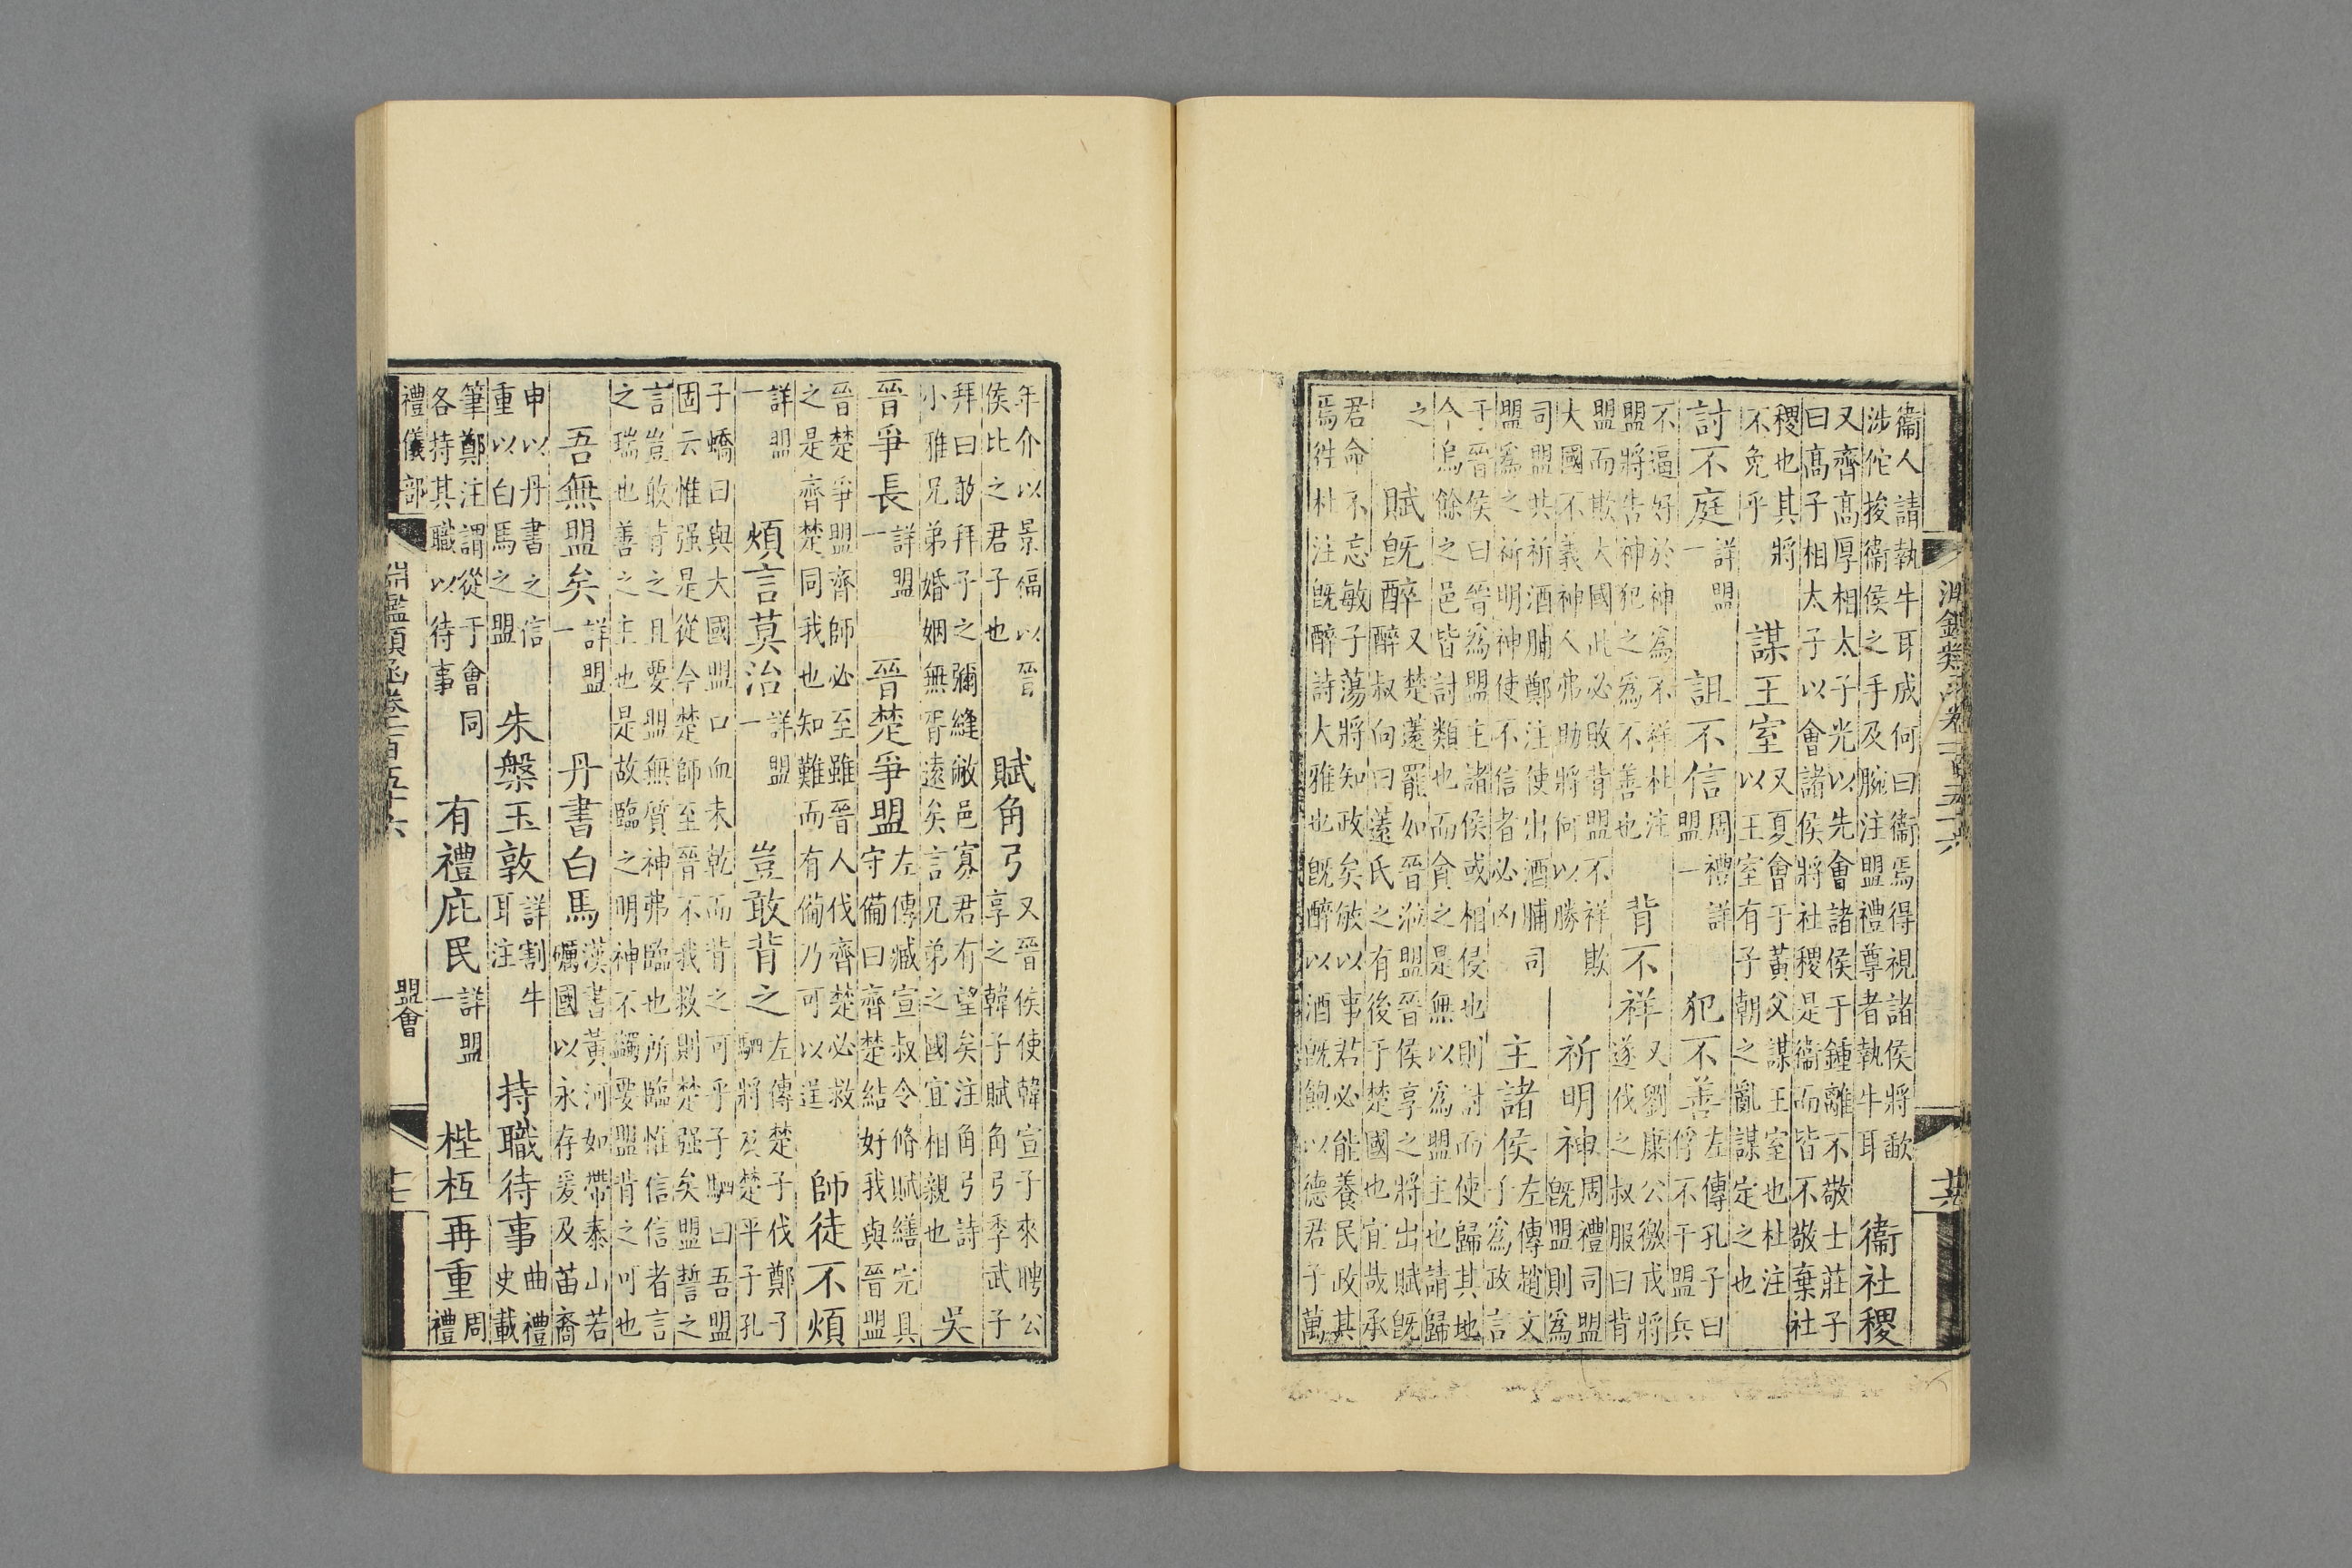 淵鑑類函卷一百五十六
十六
衞人請執牛耳成何曰衞焉得視諸侯將歃
涉佗捘衞侯之手及腕注盟禮尊者執牛耳
衞社稷
又齊高厚相太子光以先會諸侯于鍾離不敬士莊子
曰高子相太子以會諸侯將社稷是衞而皆不敬棄社
稷也其將
不免乎
謀王室
又夏會于黃父謀王室也杜注
以王室有子朝之亂謀定之也
討不庭
詳盟
一
詛不信
周禮詳
盟一
犯不善
左傳孔子曰
俘不干盟兵
不逼好於神爲不祥杜注
盟將告神犯之爲不善也
背不祥
又劉康公徼戎將
遂伐之叔服曰背
盟而欺大國此必敗背盟不祥欺
大國不義神人弗助將何以勝
祈明神
周禮司盟
旣盟則爲
司盟共祈酒脯鄭注使出酒脯司
盟爲之祈明神使不信者必凶
主諸侯
左傳趙文
子爲政言
于晉侯曰晉爲盟主諸侯或相侵也則討而使歸其地
今烏餘之邑皆討類也而貪之是無以爲盟主也請歸
之
賦旣醉
又楚薳罷如晉涖盟晉侯享之將出賦旣
醉叔向曰薳氏之有後于楚國也宜哉承
君命不忘敏子蕩將知政矣敏以事君必能養民政其
焉往杜注旣醉詩大雅也旣醉以酒旣飽以德君子萬
年介以景福以晉
侯比之君子也
賦角弓
又晉侯使韓宣子來聘公
享之韓子賦角弓季武子
拜曰敢拜子之彌縫敝邑寡君有望矣注角弓詩
小雅兄弟婚姻無胥遠矣言兄弟之國宜相親也
吳
晉爭長
詳盟
一
晉楚爭盟
左傳臧宣叔令脩賦繕完具
守備曰齊楚結好我與晉盟
晉楚爭盟齊師必至雖晉人伐齊楚必救
之是齊楚同我也知難而有備乃可以逞
師徒不煩
詳盟
一
煩言莫治
詳盟
一
豈敢背之
左傳楚子伐鄭子
駟將及楚平子孔
子蟜曰與大國盟口血未乾而背之可乎子駟曰吾盟
固云惟强是從今楚師至晉不我救則楚强矣盟誓之
言豈敢背之且要盟無質神弗臨也所臨惟信信者言
之瑞也善之主也是故臨之明神不蠲要盟背之可也
吾無盟矣
詳盟
一
丹書白馬
漢書黃河如帶泰山若
礪國以永存爰及苗裔
申以丹書之信
重以白馬之盟
朱槃玉敦
詳割牛
耳注
持職待事
曲禮
史載
筆鄭注謂從于會同
各持其職以待事
有禮庇民
詳盟
一
梐枑再重
周
禮
禮儀部
淵鑑類函卷一百五十六
盟會
十七